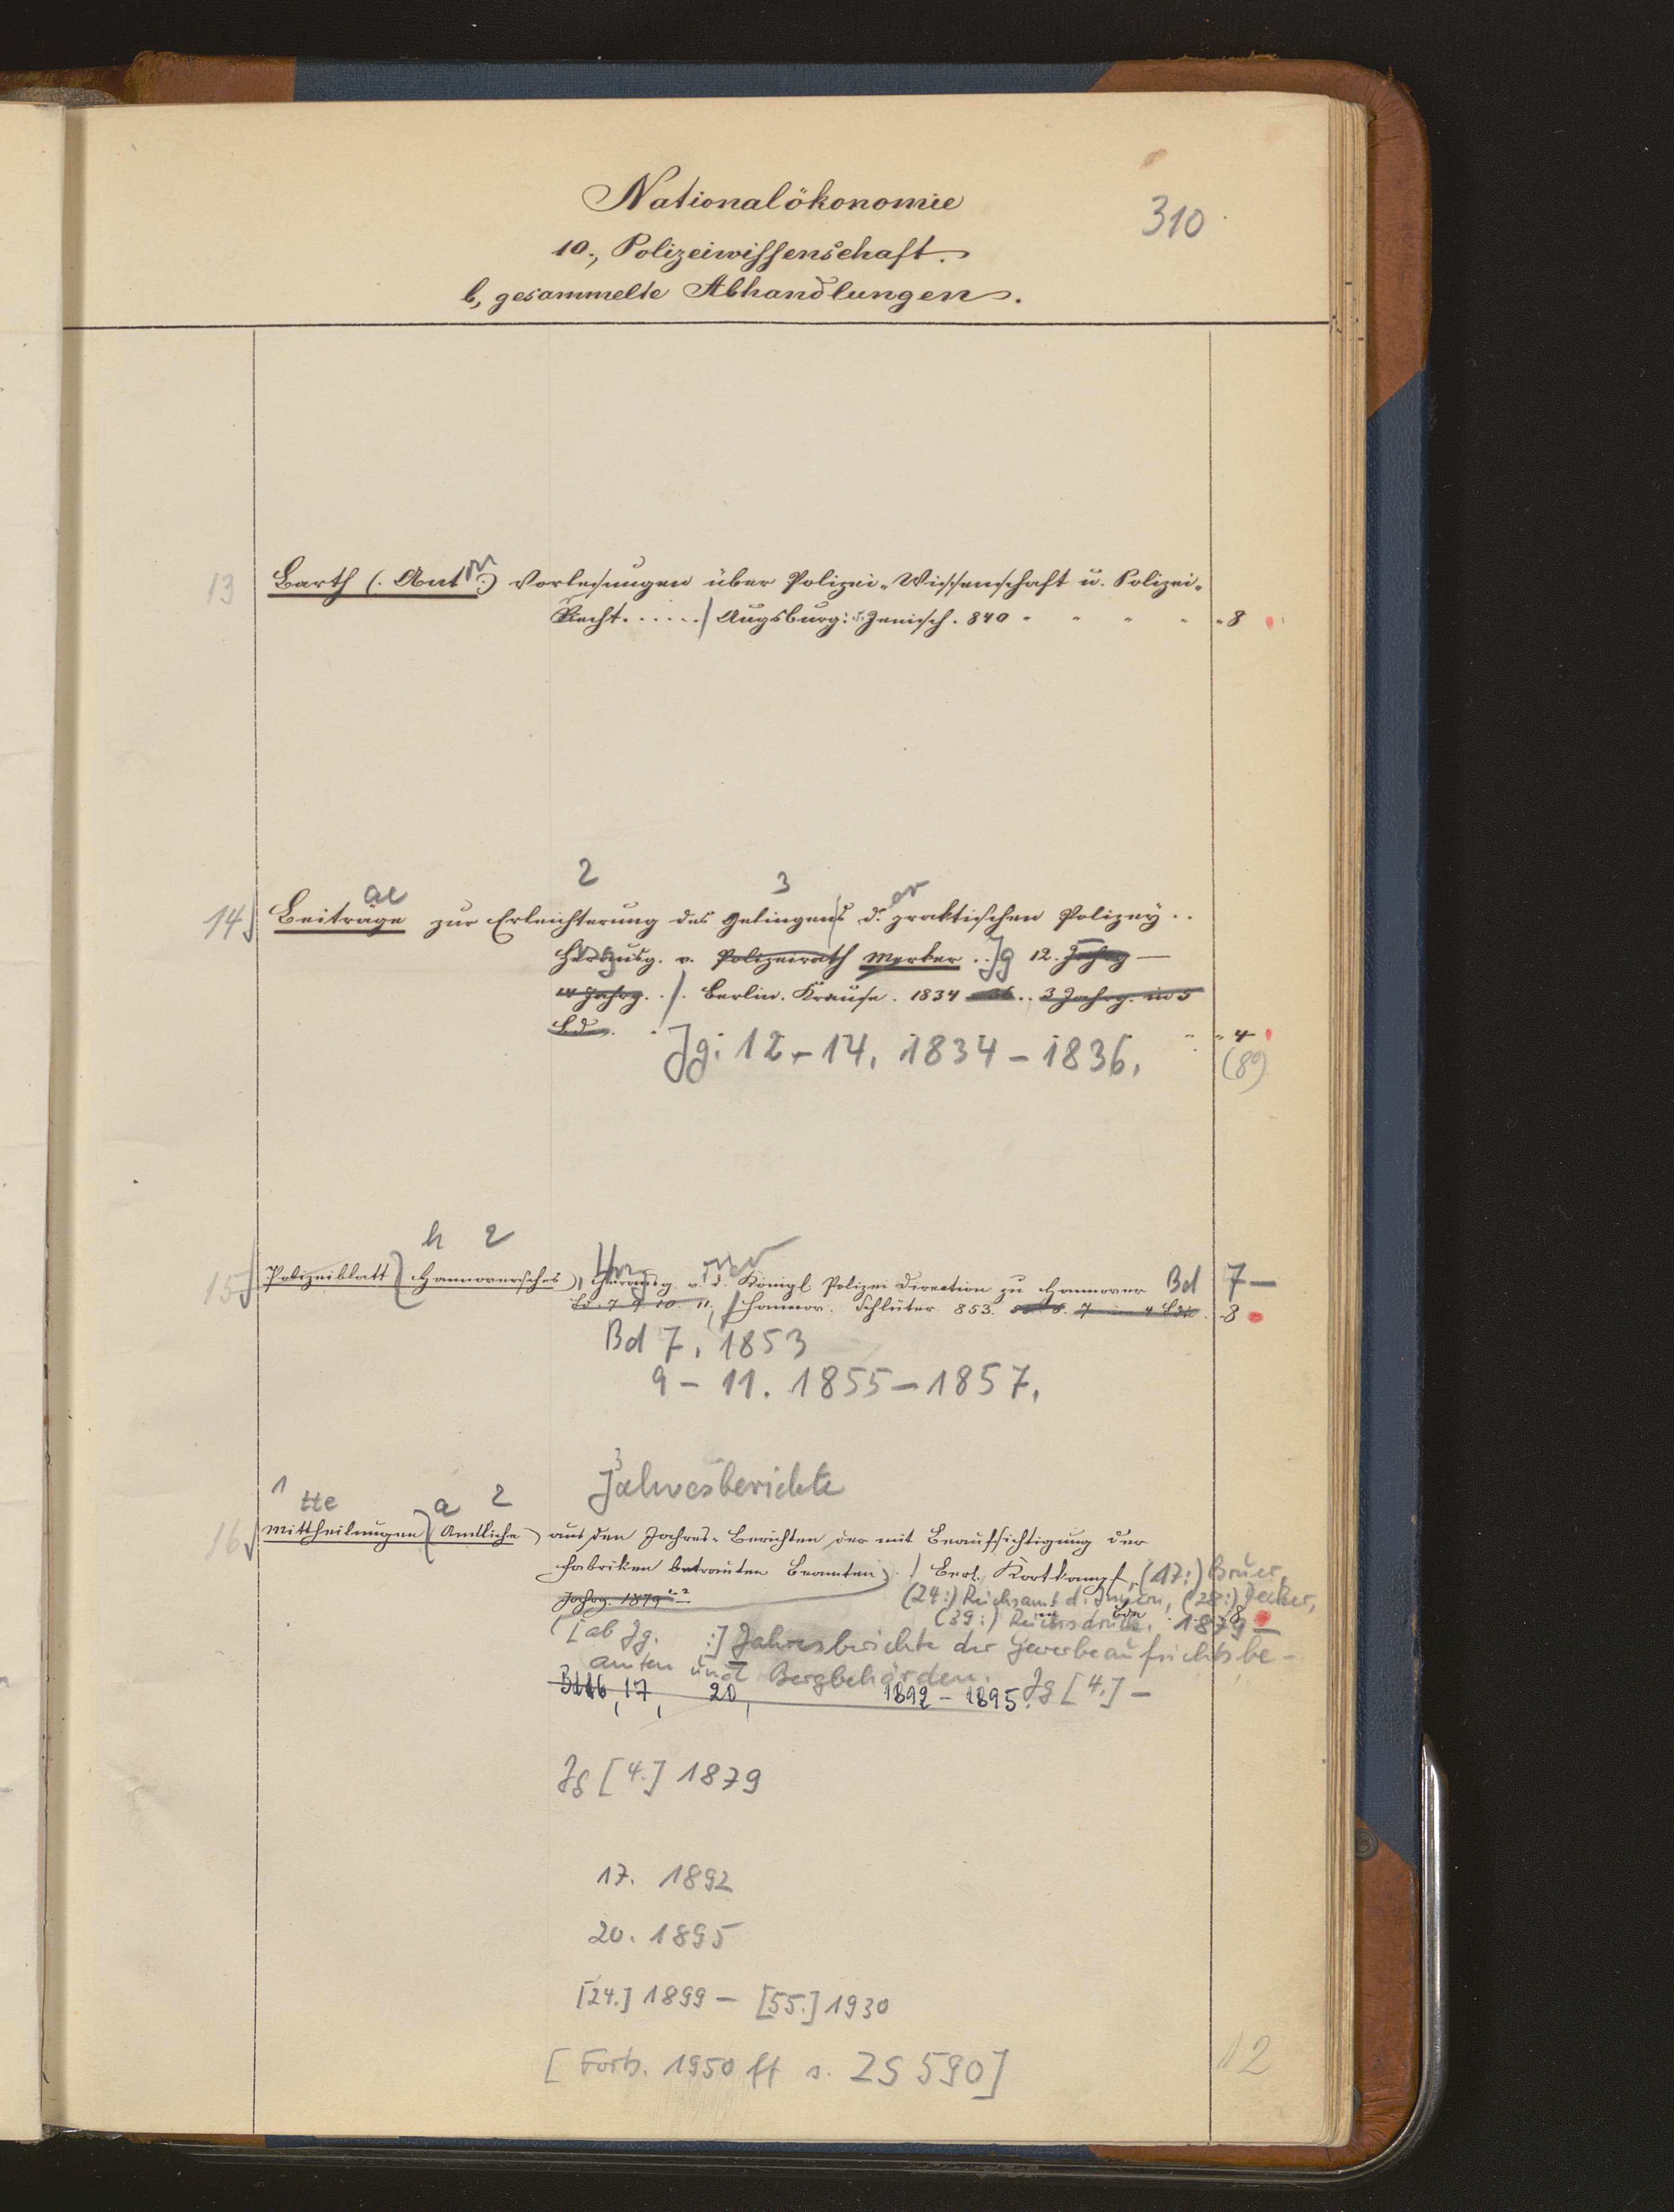 Nationalökonomie
310
10., Polizeiwissenschaft.
b, gesammelte Abhandlungen.
13 Barth (. Ant on .) Vorlesungen über Polizei-Wissenschaft u. Polizei-
Recht. ..... / Augsburg: v. Jenisch. 840 " " " " " 8
2 3
ae or
14 Beiträge zur Erleichterung des Gelingens d. praktischen Polizey ..
Herausg. v. Polizeirath Merker .. Jg 12. Jahrg —
14 Jahrg. . / . Berlin. Krause. 1834 – 36 .. 3 Jahrg. in 5
Bd. . " " 4
Jg. 12 – 14. 1834 – 1836. (8°)
h 2
Hrsg von der
15 Polizeiblatt (Hannoversches), Herausg. v. d. Königl. Polizei Direction zu Hannover Bd 7 –
Bd. 7. 9. 10. 11, / Hannov. Schlüter. 853. 7 4 Bde. 8
Bd 7. 1853
9 – 11. 1855 – 1857.
3
Jahresberichte
1 tte a 2
16 Mittheilungen (Amtliche) aus den Jahres-Berichten der mit Beaufsichtigung der
Fabriken betrauten Beamten . / Berl. Kortkampf, (17:) Bruer,
Jahrg. 1879 (24:) Reichsamt d. Innern, (28:) Decker,
(39:) Reichsdruck. 1879 – 8
[ab Jg. :] Jahresberichte der Gewerbeaufsichtsbe-
amten und Bergbehörden. Jg [4.] –
Bd 16, 17, 20, 1892 – 1895.
Jg [4.] 1879
17. 1892
20. 1895
[24.] 1899 – [55.] 1930
[Forts. 1950 ff s. ZS 590]
12